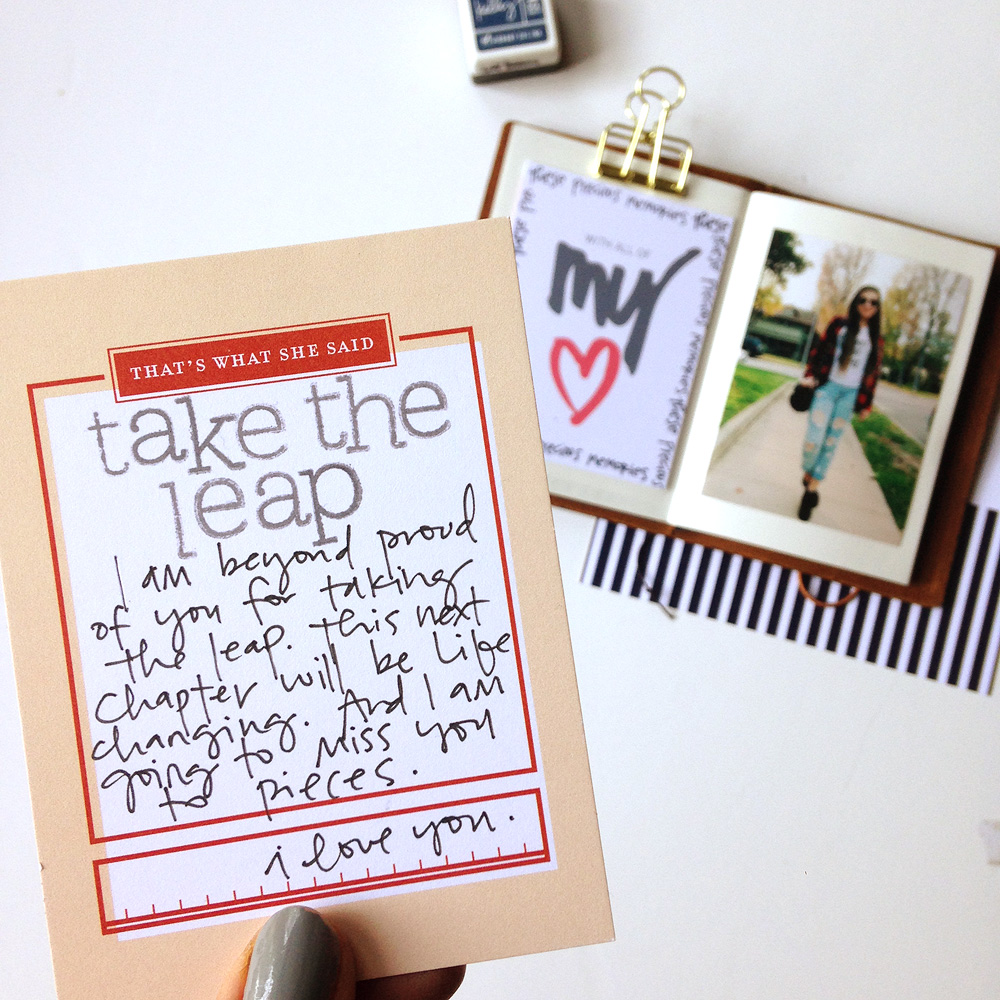 THAT'S WHAT SHE SAID
take the
leap
I am beyond proud
of you for taking
the leap. this next
chapter will be life
changing. And I am
going to miss you
to pieces.
i love you.
these precious memories these
WITH ALL OF
my
precious memories